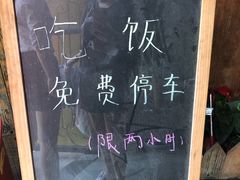 吃饭
免费停车
(限两小时)